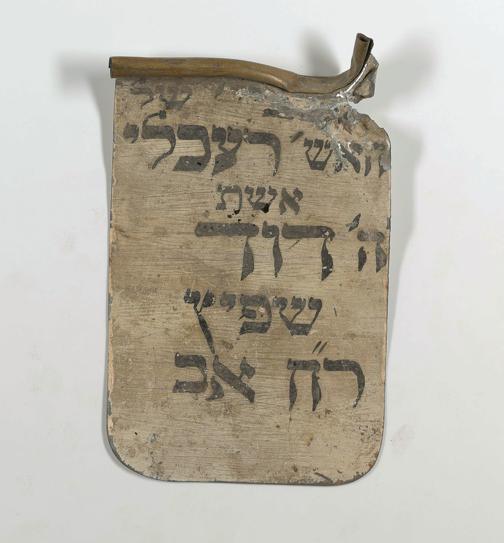 של
האש' רעכלי
אשת
ה' דוד
שפיץ
ר״ח אב